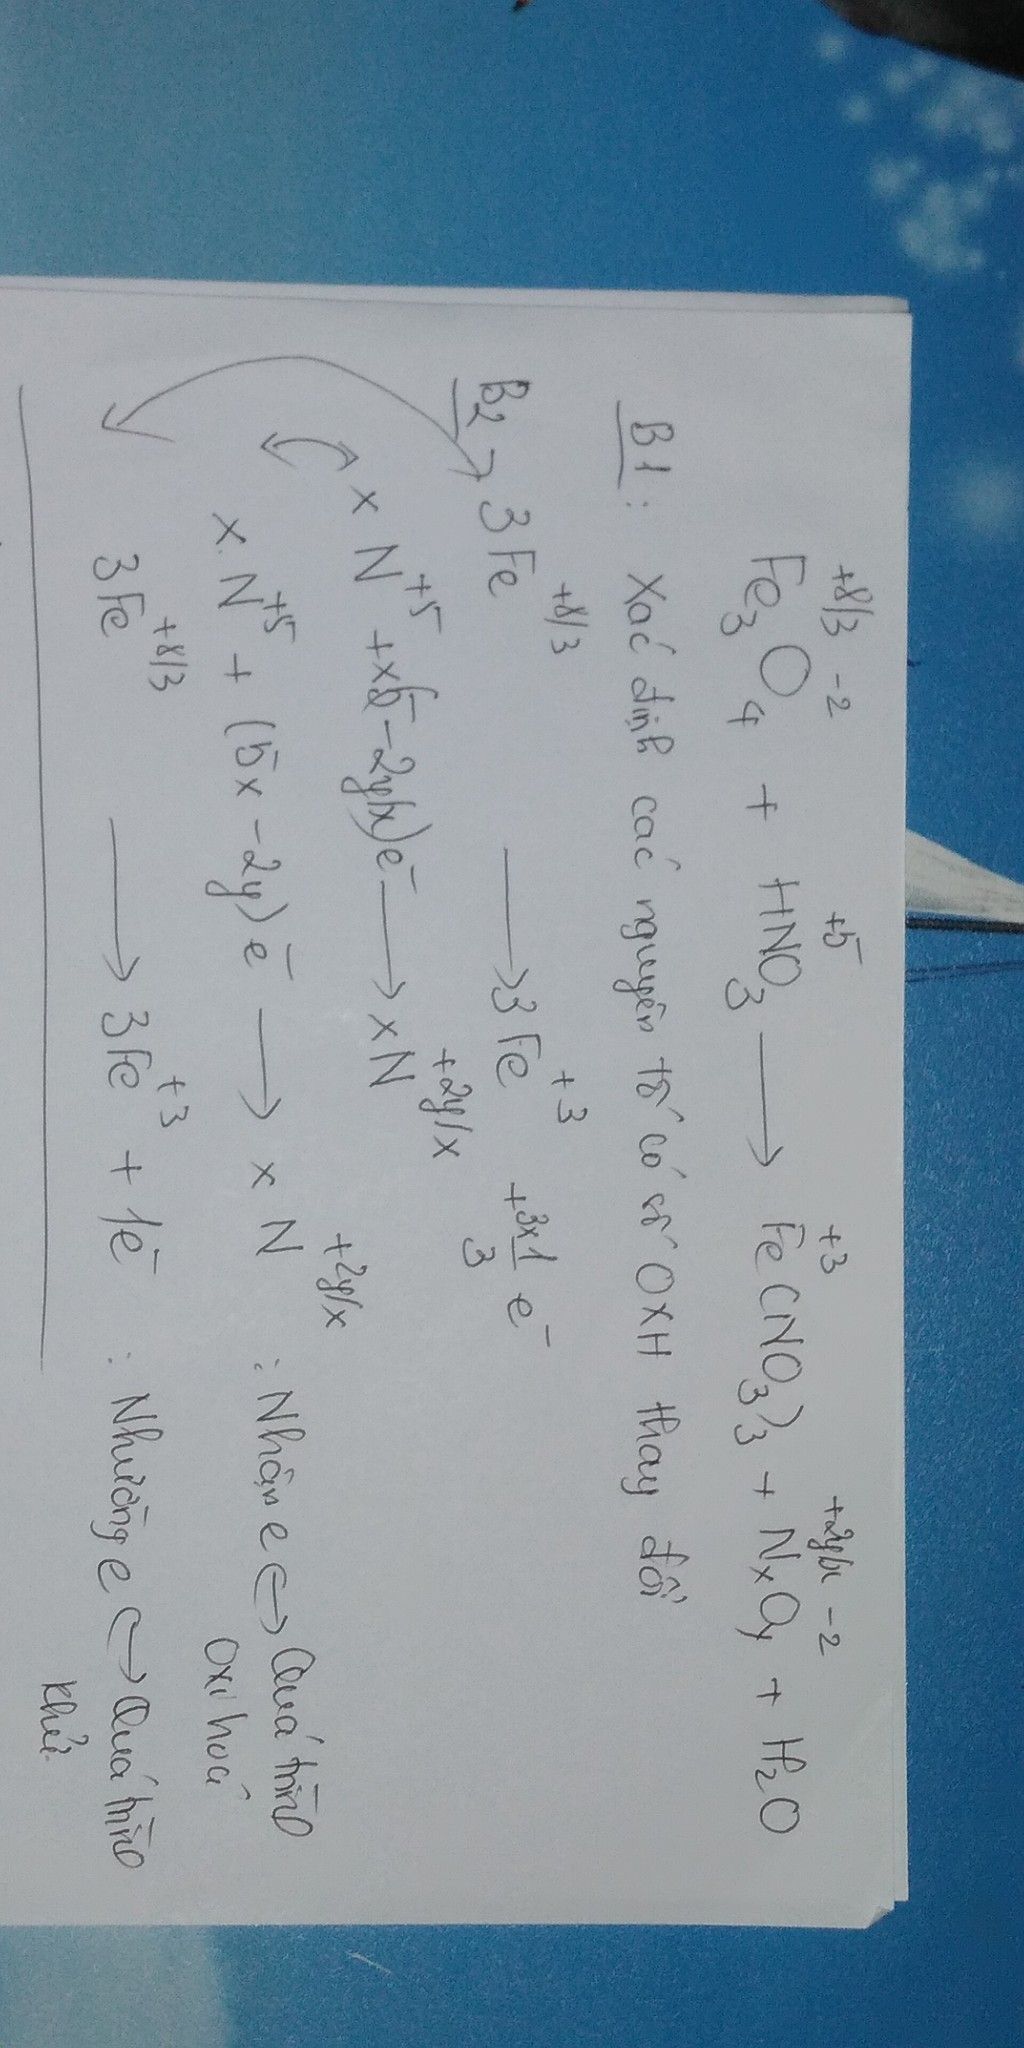 +8/3 -2 +5 +3 +2y/x -2
Fe3O4 + HNO3 ⟶ Fe(NO3)3 + NxOy + H2O
B1: Xác định các nguyên tố có số OXH thay đổi
B2 3Fe+8/3 ⟶ 3Fe+3 +3x1/3 e-
x N+5 +x(5-2y/x)e- ⟶ xN+2y/x
x N+5 + (5x-2y)e- ⟶ x N+2y/x : Nhận e ↪ Quá trình
oxi hoá
3Fe+8/3 ⟶ 3Fe+3 + 1e- : Nhường e ↪ Quá trình
khử